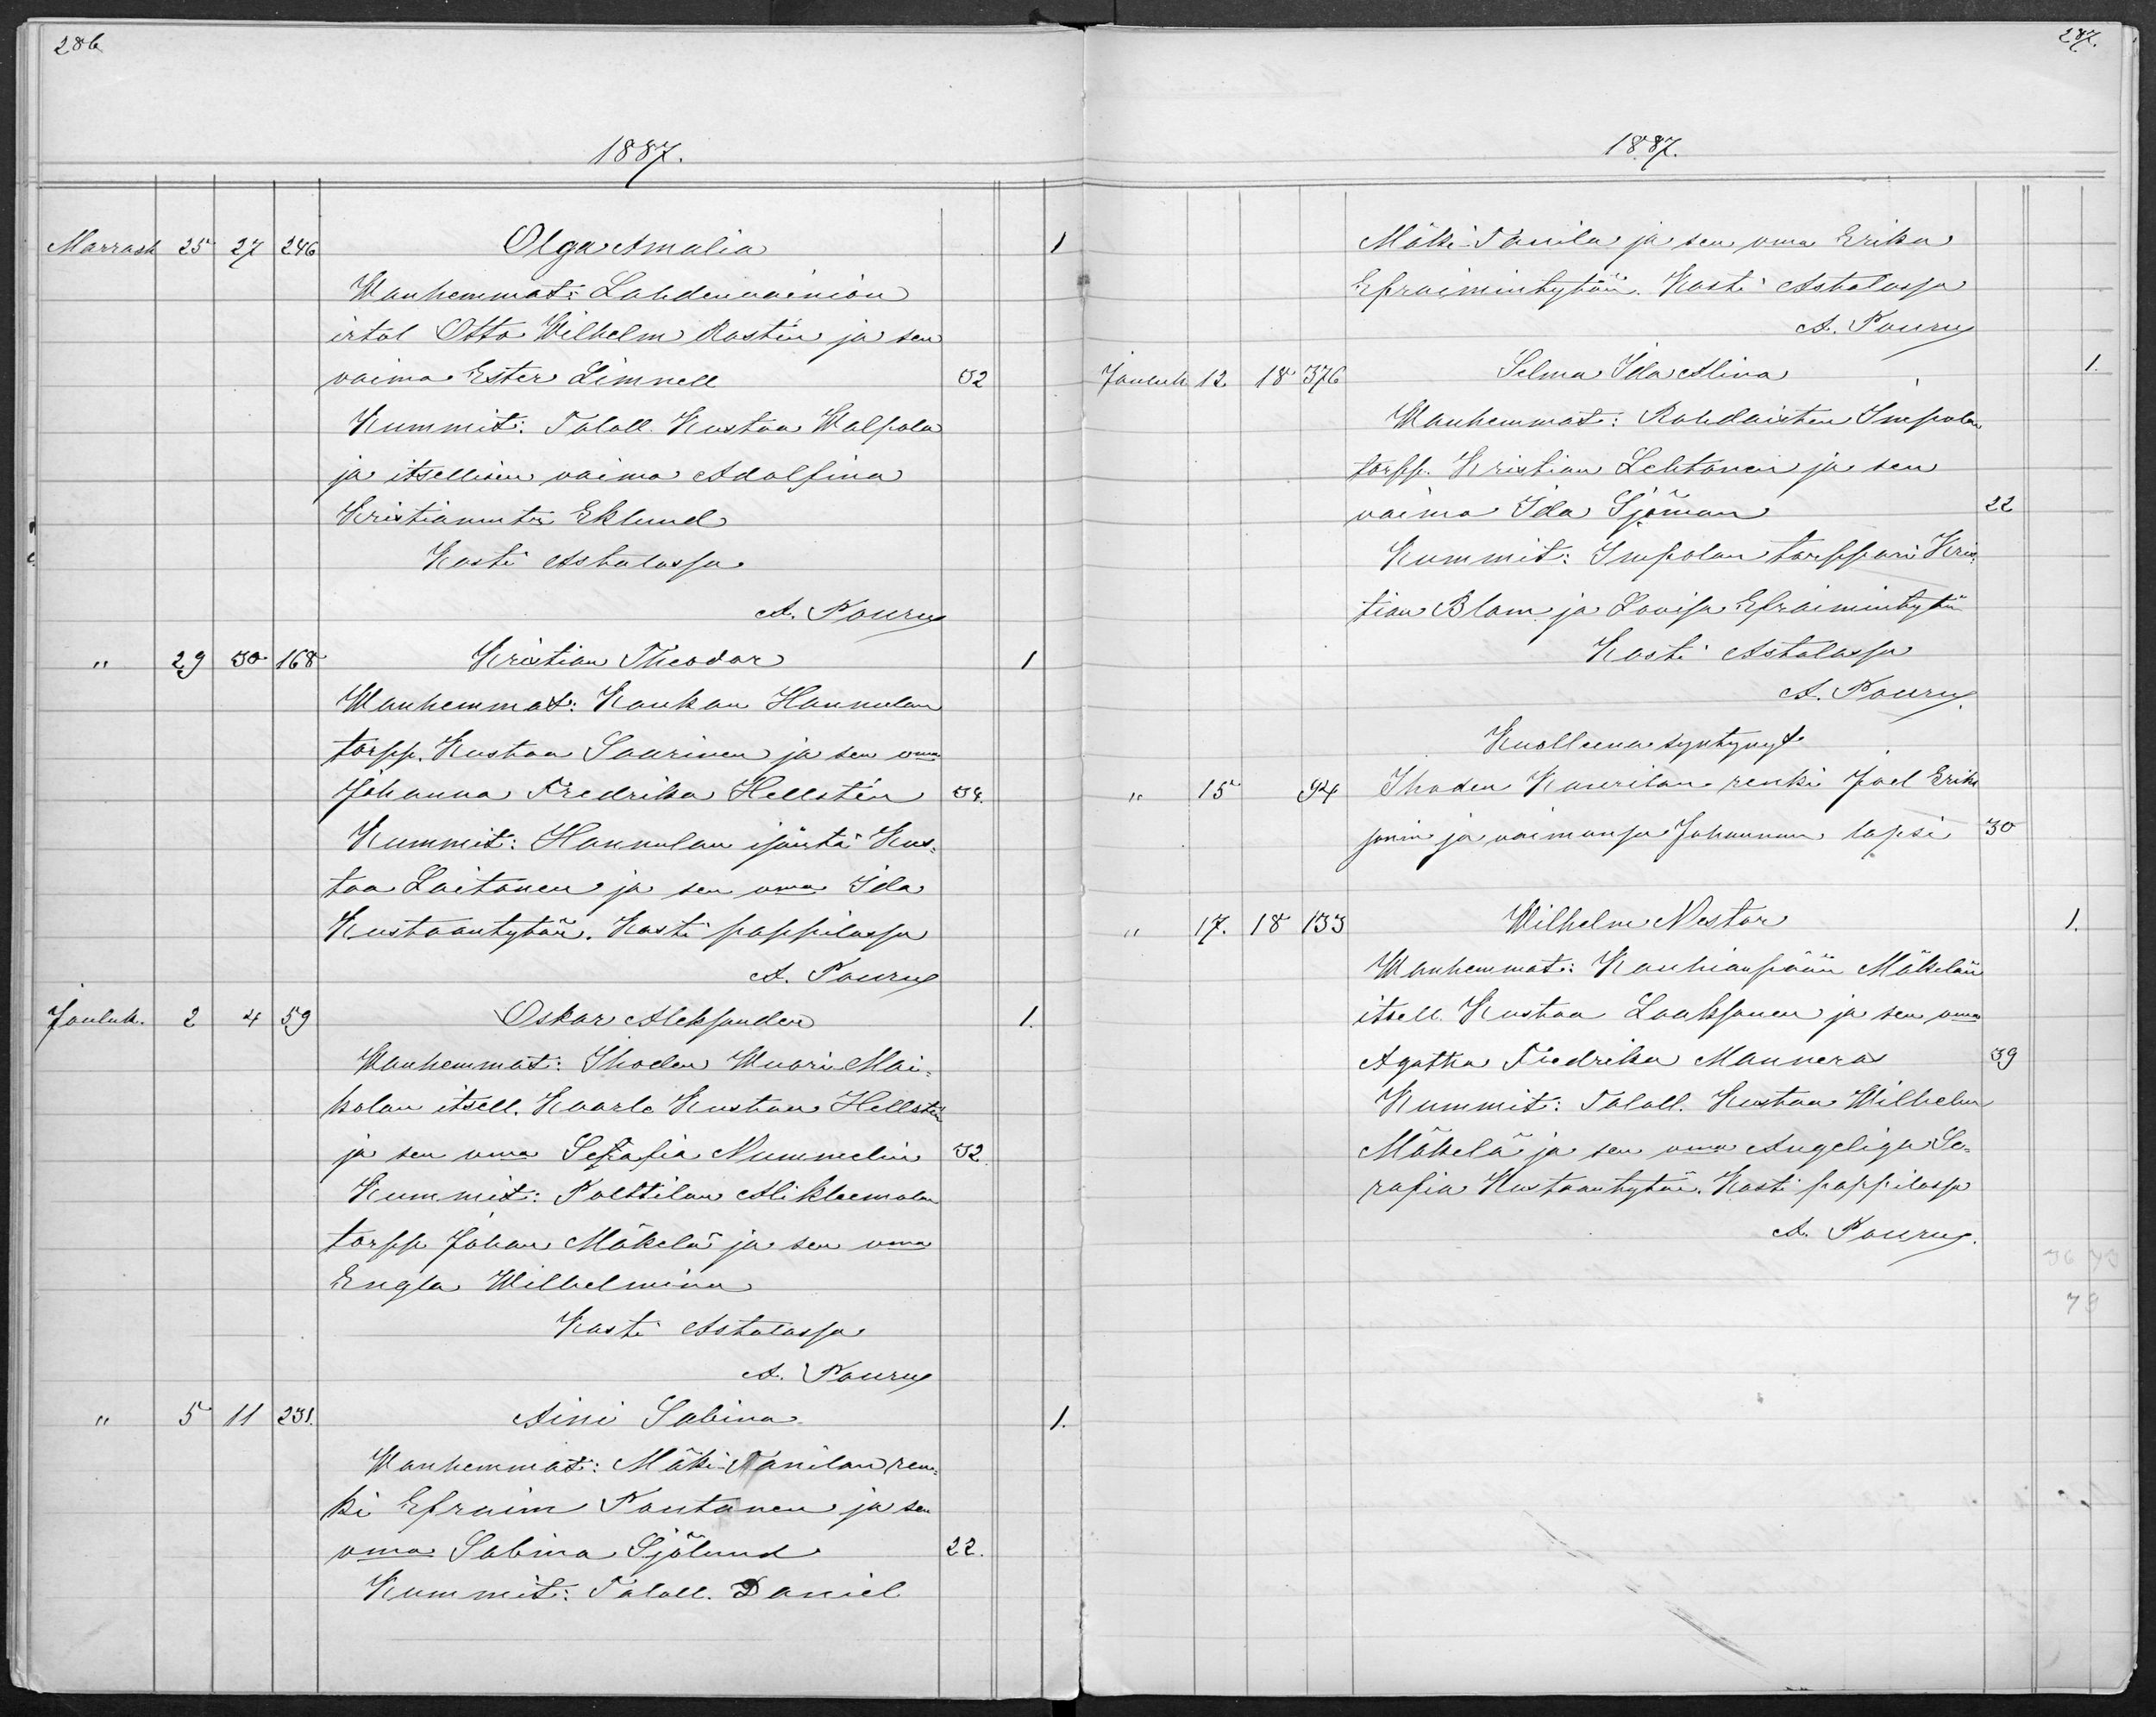 286
1887.
Marrask 25 27 246 Olga Amalia 1
Wanhemmat: Lahdenvainion
irtol Otto Wilhelm Rostén ja sen
vaimo Ester Limnell 32
Kummit: Taloll. Kustaa Walpola
ja itsellisen vaimo Adolfina
Kristianintr Eklund
Kasti Astalassa
A. Pouru
" 29 30 168 Kristian Theodor 1
Wanhemmat: Kaukan Hannulan
torpp. Kustaa Saarinen ja sen vmo
Johanna Fredrika Hellstén 34.
Kummit: Hannulan isäntä Kus-
taa Laitonen ja sen vmo Ida
Kustaantytär. Kasti pappilassa
A. Pouru
Jouluk. 2 4 59 Oskar Aleksander 1.
Wanhemmat: Ihoden Wuori-Mai-
kolan itsell. Kaarlo Kustaa Hellstén
ja sen vmo Serafia Nummelin 32.
Kummit: Polttilan Alikleemolan
torpp Johan Mäkelä ja sen vmo
Engla Wilhelmina
Kasti Astalassa
A. Pouru
" 5 11 231. Aini Sabina 1.
Wanhemmat: Mäki-Tanilan ren-
ki Efraim Pontanen ja sen
vmo Sabina Sjölund 22.
Kummit: Taloll. Daniel
287.
1887.
Mäki-Tanila ja sen vmo Erika
Efraimintytär. Kasti Astalassa
A. Pouru
Jouluk 12. 18 376 Selma Ida Alina 1.
Wanhemmat: Rohdaisten Impolan
torpp. Kristian Lehtonen ja sen
vaimo Ida Sjöman 22
Kummit: Impolan torppari Kris-
tian Blom ja Lovisa Efraimintytär
Kasti Astalassa
A. Pouru.
Kuolleena syntynyt
" 15 94 Ihoden Kaurilan renki Joel Erik
sonin ja vaimonsa Johannan lapsi 30
" 17. 18 133 Wilhelm Nestor 1.
Wanhemmat: Kauhianpään Mäkelän
itsell. Kustaa Laaksonen ja sen vmo
Agatha Fredrika Mannera 39
Kummit: Taloll. Kustaa Wilhelm
Mäkelä ja sen vmo Angeliga Se-
rafia Kustaantytär. Kasti pappilassa
A. Pouru.
36 43
79